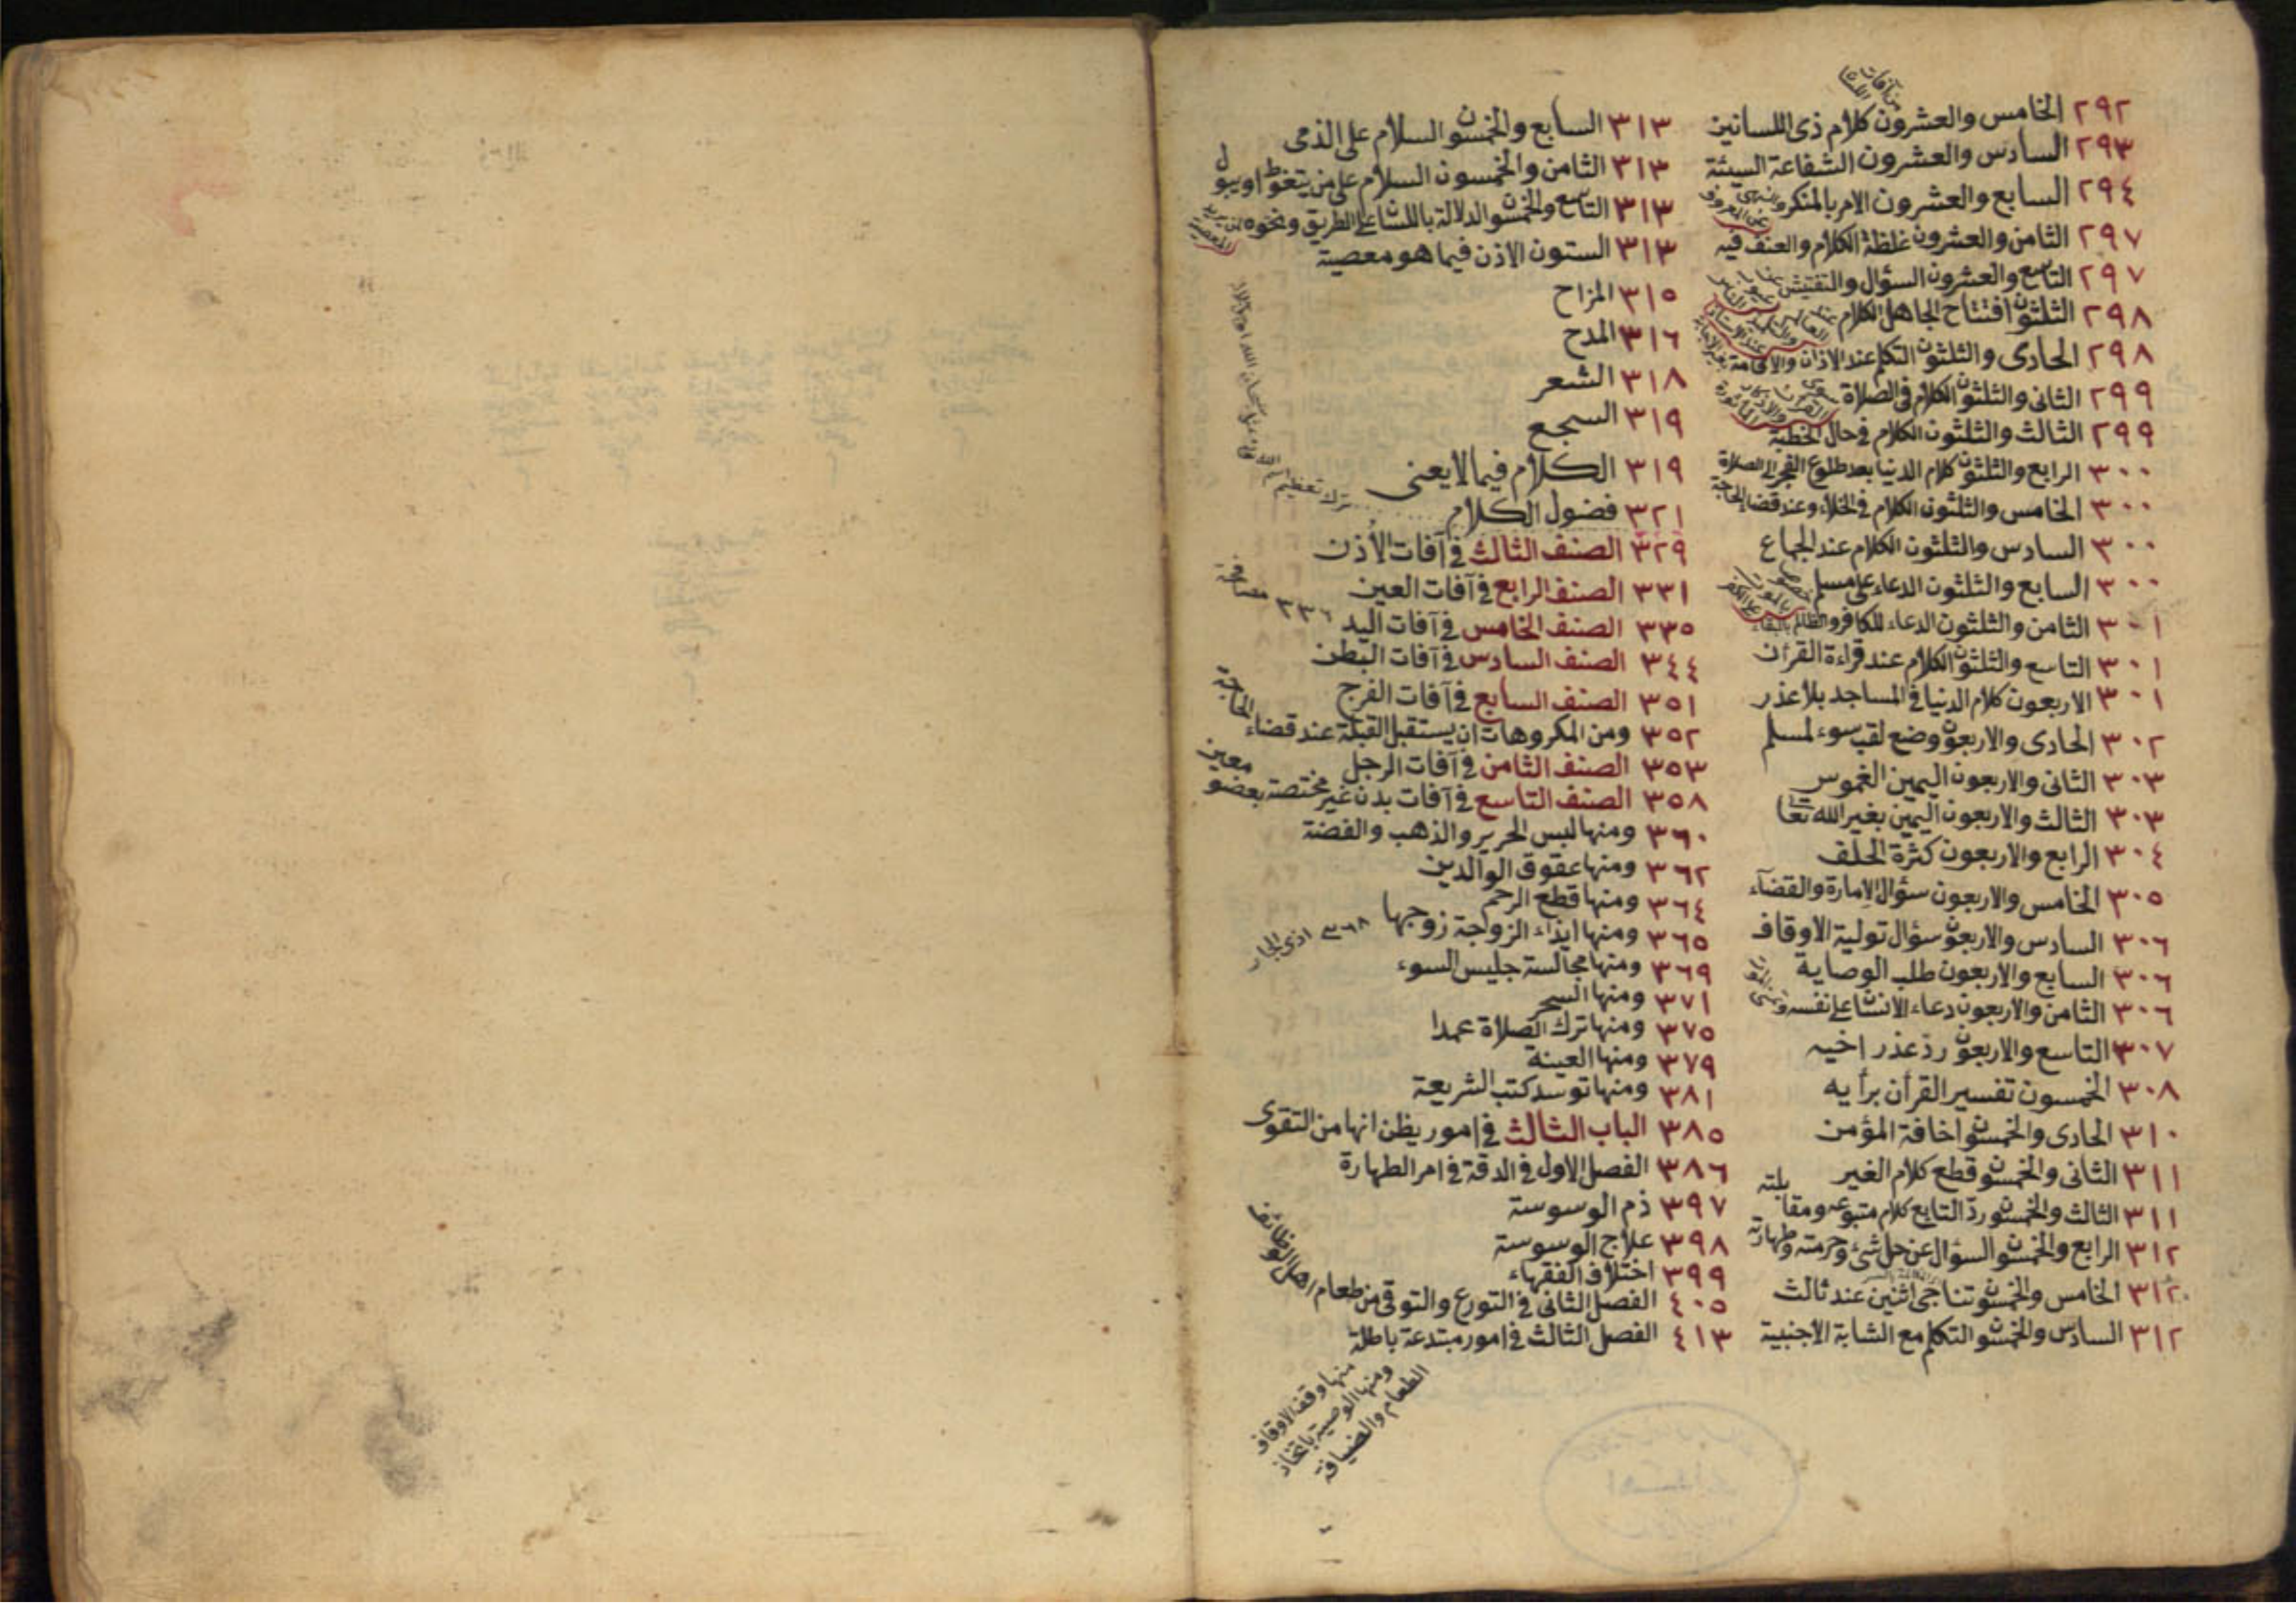 من آفات اللسان
٢٩٢ الخامس والعشرون كلام ذى اللسانين
٢٩٣ السادس والعشرون الشفاعة السيئة
٢٩٤ السابع والعشرون الامر بالمنكر والنهى عن المعروف
٢٩٧ الثامن والعشرون غلظة الكلام والعنف فيه
٢٩٧ التاسع والعشرون السؤال والتفتيش عن عيوب الناس
٢٩٨ الثلثون افتتاح الجاهل الكلام عند العالم والتلميذ عند الاستاذ
٢٩٨ الحادى والثلثون التكلم عند الاذان والاقامة بغير الاجابة
٢٩٩ الثانى والثلثون الكلام فى الصلاة سوى القرآن والاذكار المأثورة
٢٩٩ الثالث والثلثون الكلام فى حال الخطبة
٣٠٠ الرابع والثلثون كلام الدنيا بعد طلوع الفجر الى الصلاة
٣٠٠ الخامس والثلثون الكلام فى الخلاء وعند قضاء الحاجة
٣٠٠ السادس والثلثون الكلام عند الجماع
٣٠٠ السابع والثلثون الدعاء على مسلم خصوصا بالموت على الكفر
٣٠١ الثامن والثلثون الدعاء للكافر والظالم بالبقاء
٣٠١ التاسع والثلثون الكلام عند قراءة القرأن
٣٠١ الاربعون كلام الدنيا فى المساجد بلا عذر
٣٠٢ الحادى والاربعون وضع لقب سوء لمسلم
٣٠٣ الثانى والاربعون اليمين الغموس
٣٠٣ الثالث والاربعون اليمين بغير الله تعا
٣٠٤ الرابع والاربعون كثرة الحلف
٣٠٥ الخامس والاربعون سؤال الامارة والقضآء
٣٠٦ السادس والاربعون سؤال تولية الاوقاف
٣٠٦ السابع والاربعون طلب الوصاية
٣٠٦ الثامن والاربعون دعاء الانسان على نفسه وتمنى الموت
٣٠٧ التاسع والاربعون رد عذر اخيه
٣٠٨ الخمسون تفسير القرأن برأيه
٣١٠ الحادى والخمسون اخافة المؤمن
٣١١ الثانى والخمسون قطع كلام الغير
٣١١ الثالث والخمسون رد التابع كلام متبوعه ومقابلته
٣١٢ الرابع والخمسون السؤال عن حل شئ وحرمته وطهارته
٣١٢ الخامس والخمسون تناجى اثنين عند ثالث
٣١٢ السادس والخمسون التكلم مع الشابة الاجنبية
٣١٣ السابع والخمسون السلام على الذمى
٣١٣ الثامن والخمسون السلام على من يتغوط او يبول
٣١٣ التاسع والخمسون الدلالة باللسان على الطريق ونحوه لمن يريد المعصية
٣١٣ الستون الاذن فيما هو معصية
٣١٥ المزاح
٣١٦ المدح
٣١٨ الشعر
٣١٩ السجع
٣١٩ الكلام فيما لا يعنى
٣٢١ فضول الكلام
ترك تعظيم
٣٢٩ الصنف الثالث فى آفات الأذن
٣٣١ الصنف الرابع فى آفات العين
٣٣٥ الصنف الخامس فى آفات اليد
٣٣٦
٣٤٤ الصنف السادس فى آفات البطن
٣٥١ الصنف السابع فى آفات الفرج
٣٥٢ ومن المكروهات ان يستقبل القبلة عند قضاء الحاجة
٣٥٣ الصنف الثامن فى آفات الرجل
٣٥٨ الصنف التاسع فى آفات بدن غير مختصة بعضو معين
٣٦٠ ومنها لبس الحرير والذهب والفضة
٣٦٢ ومنها عقوق الوالدين
٣٦٤ ومنها قطع الرحم
٣٦٥ ومنها ايذاء الزوجة زوجها
٣٦٨ اذى الجار
٣٦٩ ومنها مجالسة جليس السوء
٣٧١ ومنها السحر
٣٧٥ ومنها ترك الصلاة عمدا
٣٧٩ ومنها العينة
٣٨١ ومنها توسد كتب الشريعة
٣٨٥ الباب الثالث فى امور يظن انها من التقوى
٣٨٦ الفصل الاول فى الدقة فى امر الطهارة
٣٩٧ ذم الوسوسة
٣٩٨ علاج الوسوسة
٣٩٩ اختلاف الفقهاء
٤٠٥ الفصل الثانى فى التورع والتوقى من طعام اهل الوظائف
٤١٣ الفصل الثالث فى امور مبتدعة باطلة
منها وقف الاوقاف
ومنها الوصية باتخاذ
الطعام والضيافة